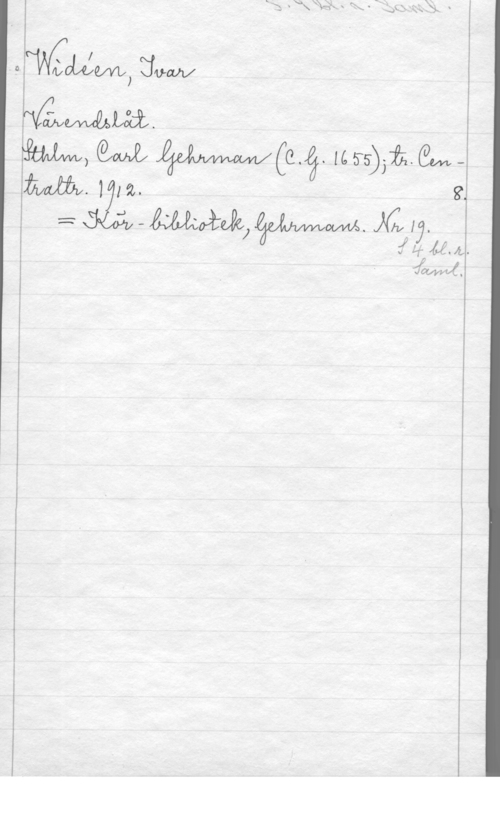 Widéen, Ivar
Värendslåt.
Sthlm, Carl Gehrman (C.G. 1655); tr. Cen-
traltr. 1912. 8.
= Kör-bibliotek, Gehrmans. Nr 19.
S 4 bl. n.
Saml.